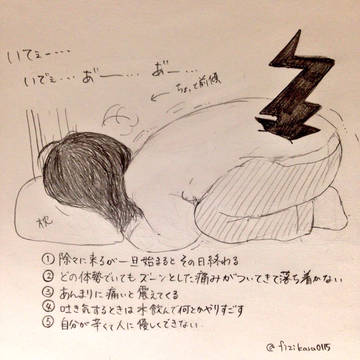 いてぇー…
いでぇ… あ゛ー… あ゛…
ちょっと前後
枕
① 除々に来るが一旦始まるとその日終わる
② どの体勢でいてもズーンとした痛みがついてきて落ち着かない
③ あんまりに痛いと震えてくる
④ 吐き気するときは水飲んで何とかやりすごす
⑤ 自分が辛くて人に優しくできない
@fizikasu0115